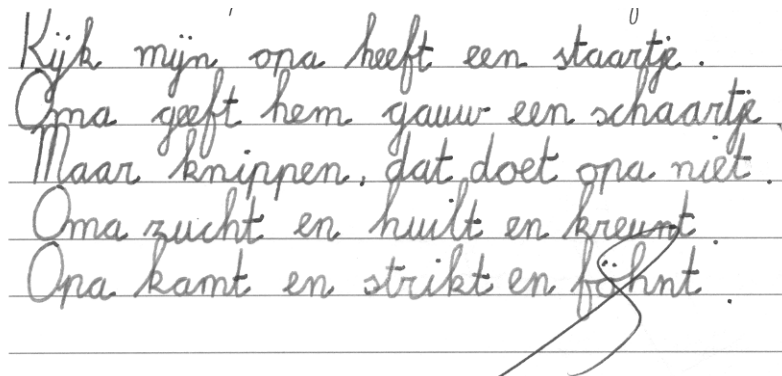 Kijk mijn opa heeft een staartje.
Oma geeft hem gauw een schaartje.
Maar knippen, dat doet opa niet.
Oma zucht en huilt en kreunt.
Opa kamt en strikt en föhnt.